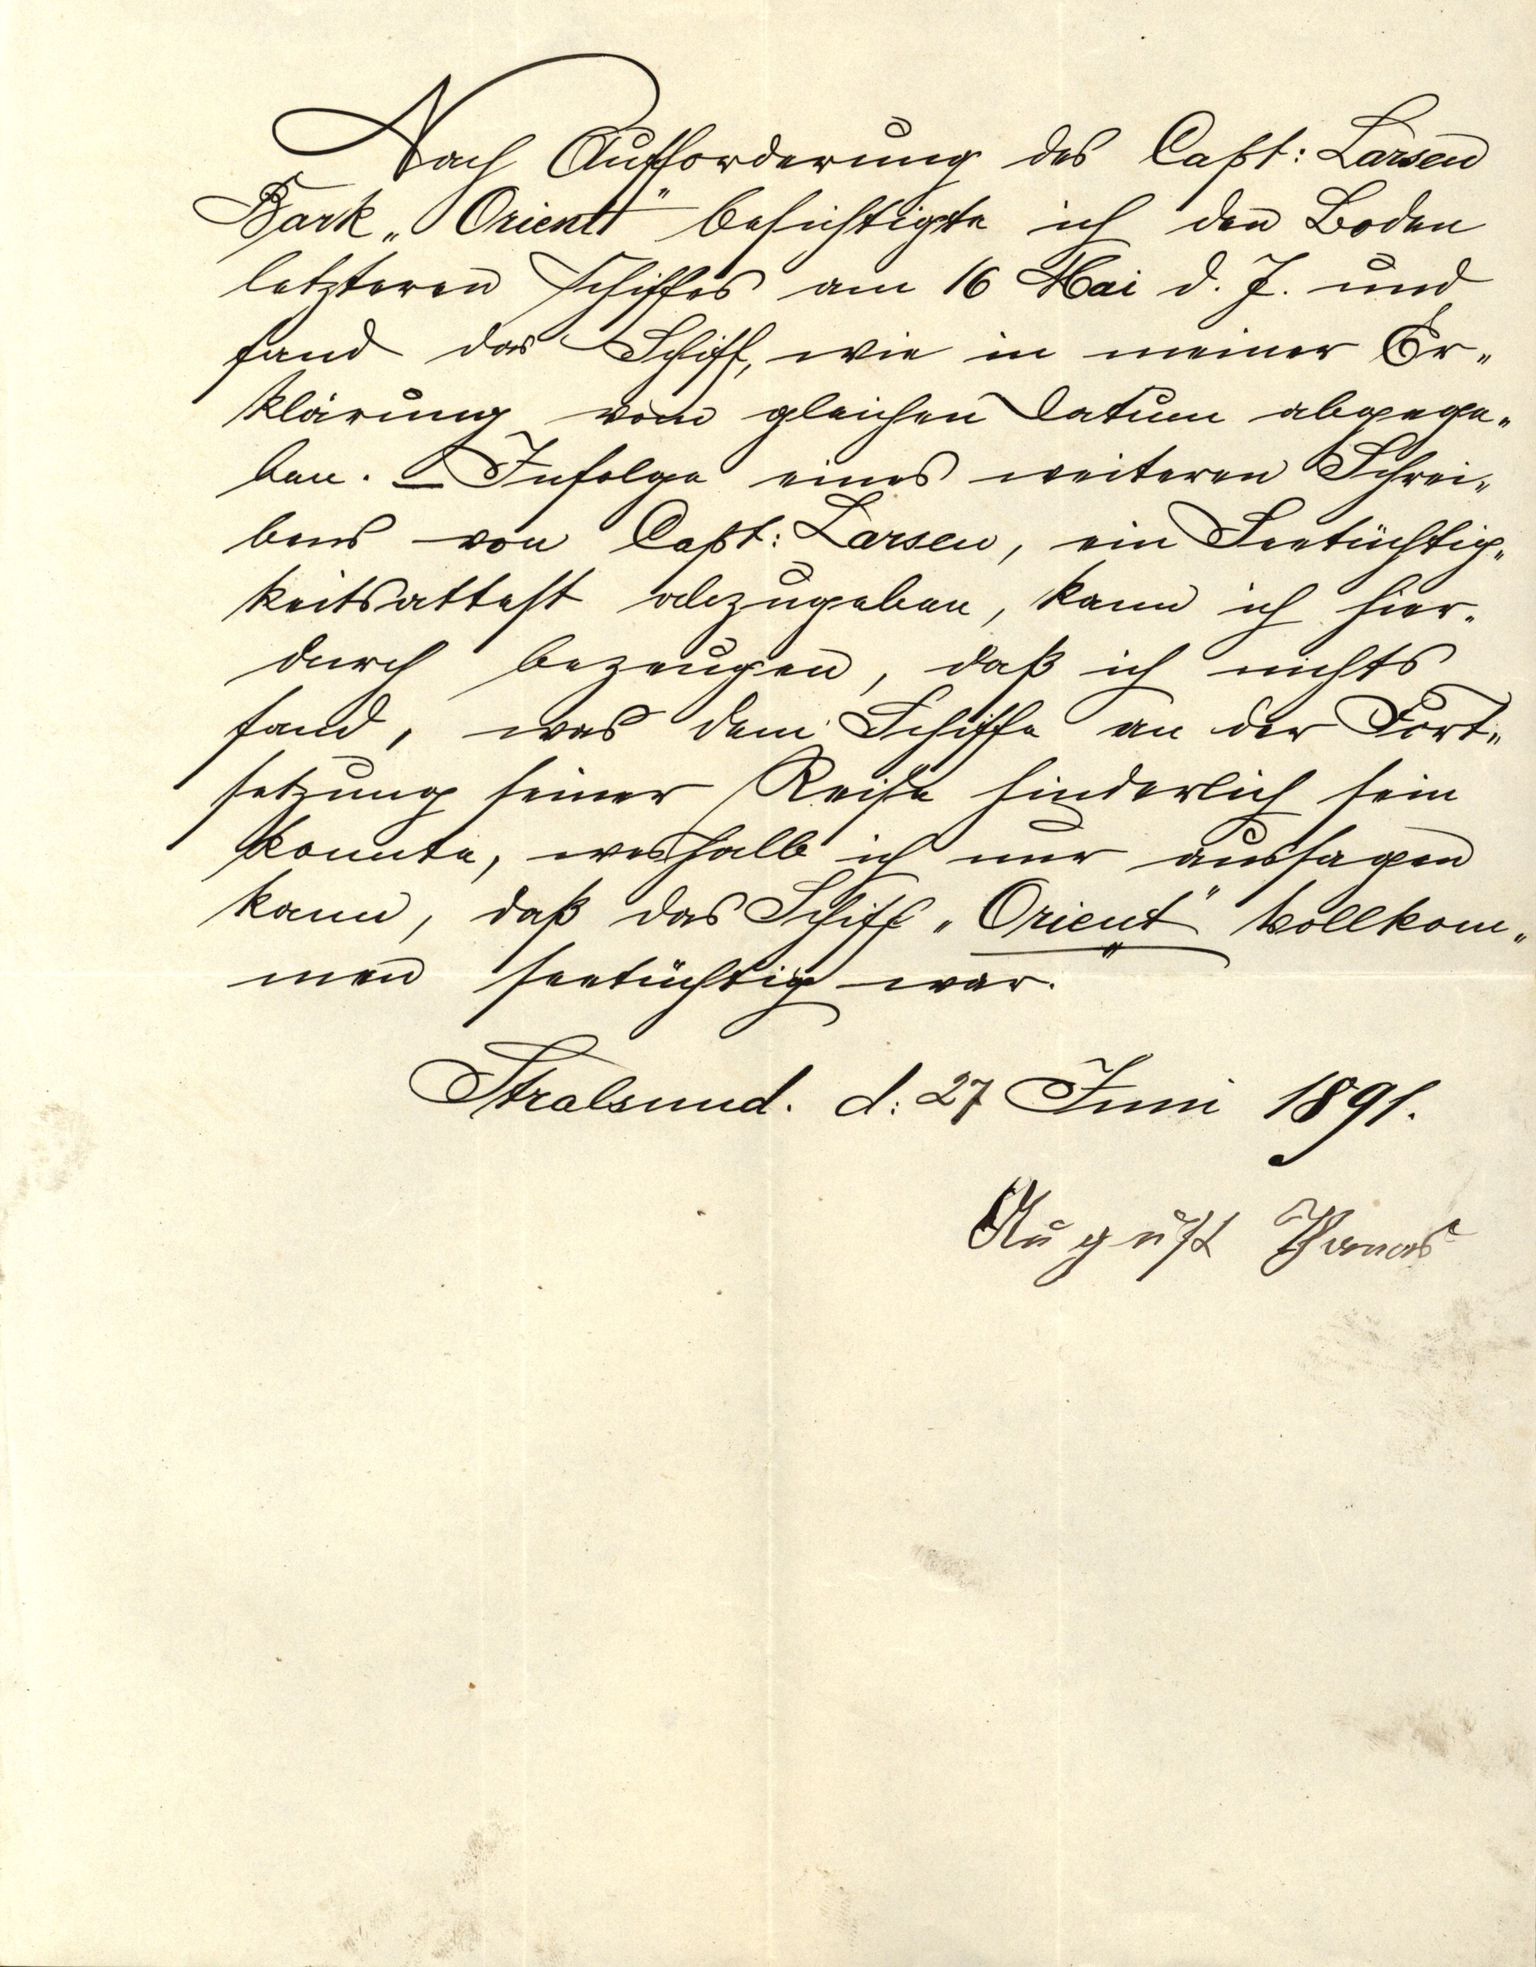 Nach Aufforderung des Capt: Larsen
Bark „Orient" besichtigte ich den Boden
letzteren Schiffes am 16 Mai d. J. und
fand das Schiff, wie in meiner Er„
klärung vom gleichen Datum abgege„
ben. – Infolge eines weiteren Schrei„
bens von Capt: Larsen, ein Seetüchtig„
keitsattest abzugeben, kann ich hier„
durch bezeugen, daß ich nichts
fand, was dem Schiffe an der Fort„
setzung seiner Reise hinderlich sein
konnte, weshalb ich nur aussagen
kann, daß das Schiff „Orient" vollkom„
men seetüchtig war.
Stralsund. d: 27 Juni 1891.
August